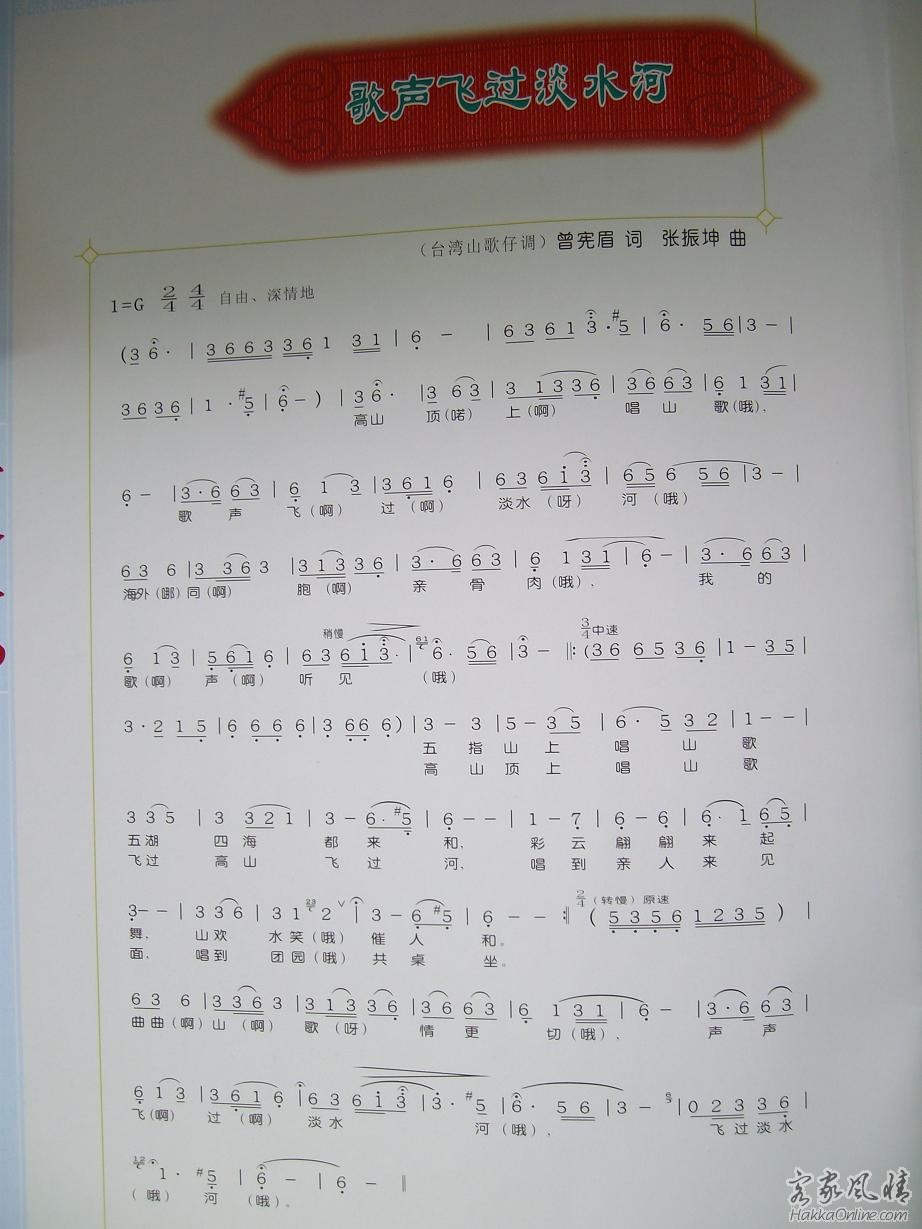 歌声飞过淡水河
（台湾山歌仔调）曾宪眉 词 张振坤 曲
1=G 2/4 4/4 自由、深情地
(3 6· | 3 6 6 3 3 6 1 3 1 | 6 - | 6 3 6 1 3·#5 | 6· 5 6 | 3 - |
3 6 3 6 | 1 ·#5 | 6 - ) | 3 6· | 3 6 3 | 3 1 3 3 6 | 3 6 6 3 | 6 1 3 1 |
高山 顶(喏) 上(啊) 唱 山 歌(哦)、
6 - | 3·6 6 3 | 6 1 3 | 3 6 1 6 | 6 3 6 i 3 | 6 5 6 5 6 | 3 - |
歌 声 飞(啊) 过(啊) 淡水(呀) 河(哦)
6 3 6 | 3 3 6 3 | 3 1 3 3 6 | 3·6 6 3 | 6 1 3 1 | 6 - | 3·6 6 3 |
海外(哪)同(啊) 胞(啊) 亲 骨 肉(哦)、 我 的
稍慢 3/4中速
6 1 3 | 5 6 1 6 | 6 3 6 i 3· | 6· 5 6 | 3 - ‖: (3 6 6 5 3 6 | 1 - 3 5 |
歌(啊) 声(啊) 听 见 (哦)
3·2 1 5 | 6 6 6 6 | 3 6 6 6 ) | 3 - 3 | 5 - 3 5 | 6· 5 3 2 | 1 - - |
五 指 山 上 唱 山 歌
高 山 顶 上 唱 山 歌
3 3 5 | 3 3 2 1 | 3 - 6·#5 | 6 - - | 1 - 7 | 6 - 6 | 6· 1 6 5 |
五湖 四海 都 来 和， 彩 云 翩 翩 来 起
飞过 高山 飞 过 河， 唱 到 亲 人 来 见
3 - - | 3 3 6 | 3 1 2 | 3 - 6 #5 | 6 - - :‖ 2/4 (转慢) 原速 ( 5 3 5 6 1 2 3 5 ) |
舞， 山欢 水笑(哦) 催 人 和。
面， 唱到 团园(哦) 共 桌 坐。
6 3 6 | 3 3 6 3 | 3 1 3 3 6 | 3 6 6 3 | 6 1 3 1 | 6 - | 3·6 6 3 |
曲曲(啊)山(啊) 歌(呀) 情 更 切(哦)、 声 声
6 1 3 | 3 6 1 6 | 6 3 6 i 3 | 3· #5 | 6· 5 6 | 3 - | 0 2 3 3 6 |
飞(啊) 过(啊) 淡水 河(哦)、 飞过淡水
1· #5 | 6 - | 6 - ‖
(哦) 河 (哦)。
客家风情
HakkaOnline.com